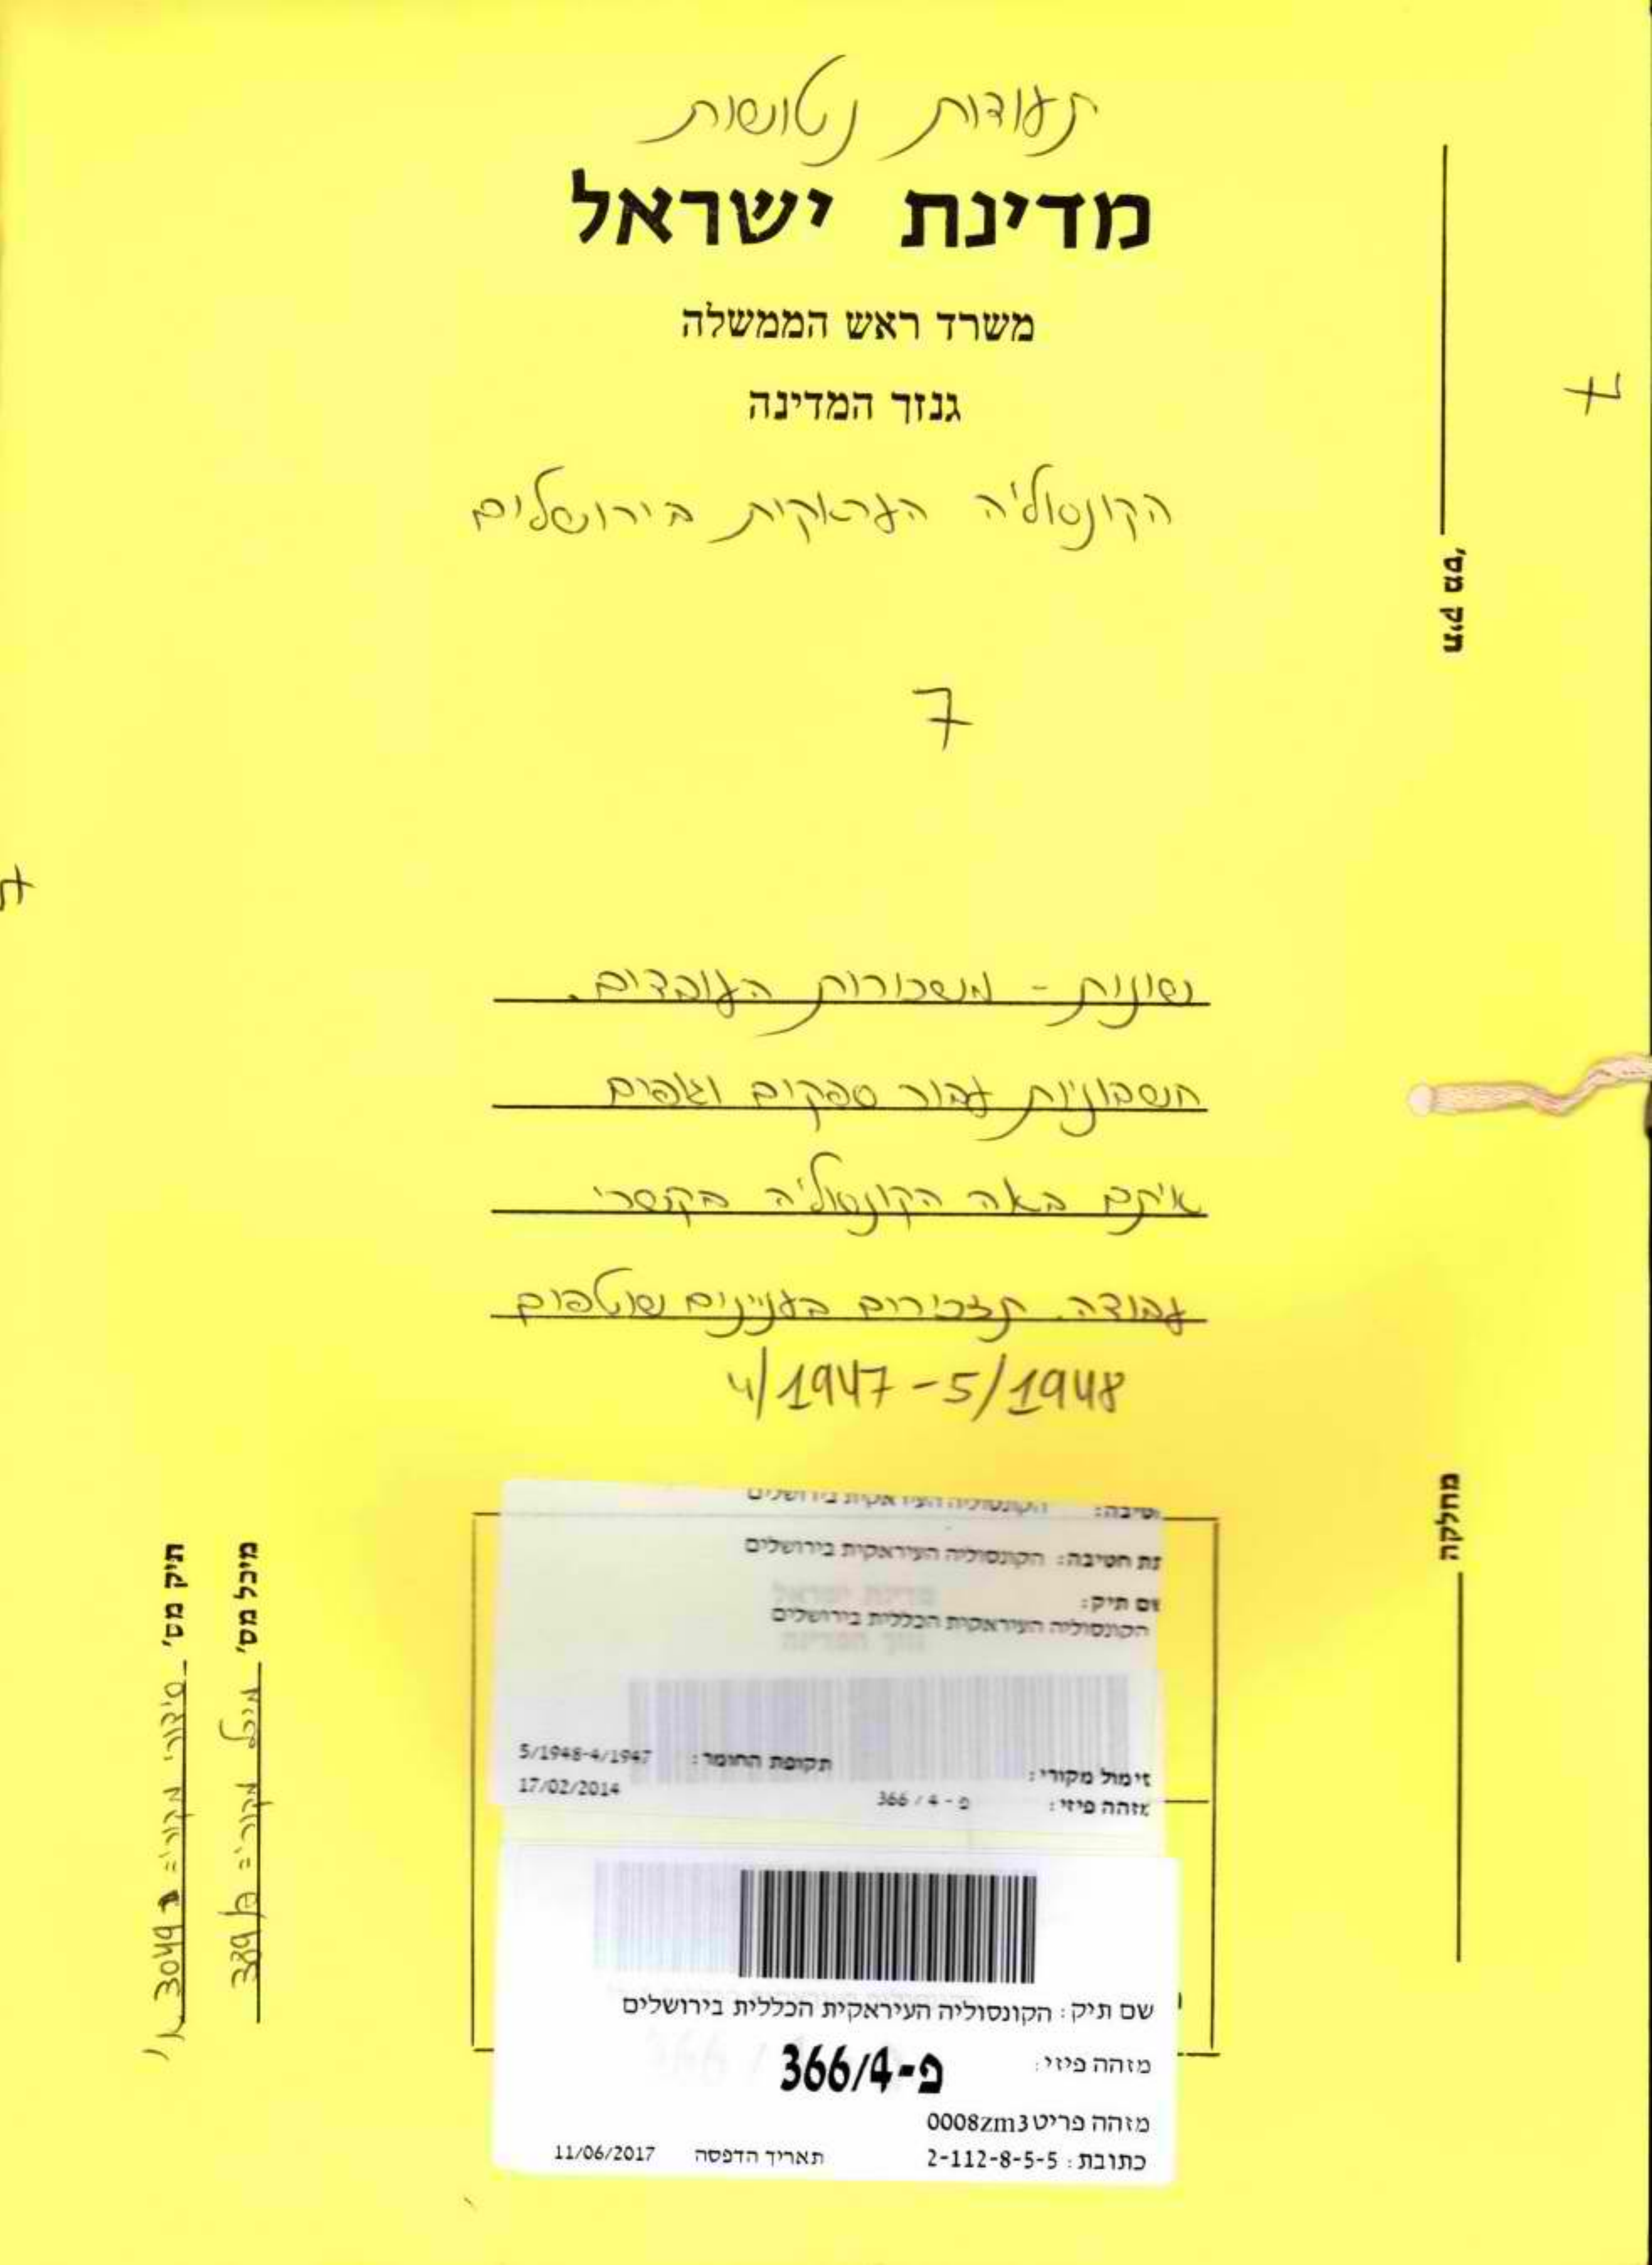 תעודות נטושות
מדינת ישראל
משרד ראש הממשלה
גנזך המדינה
הקונסוליה העראקית בירושלים
7
שונות - משכורות העובדים.
חשבוניות עבור ספקים וגופים
איתם באה הקונסוליה בקשרי
עבודה. תזכירים בעניינים שוטפים
4/1947-5/1948
תיק מס'
מחלקה
תיק מס' סידורי מקורי= 3049
מיכל מס' מיכל מקורי= 389
טיבה: הקונסוליה העיראקית בירושלים
תת חטיבה: הקונסוליה העיראקית בירושלים
שם תיק:
הקונסוליה העיראקית הכללית בירושלים
מדינת ישראל
גנזך המדינה
תקופת החומר: 5/1948-4/1947
סימול מקורי:
17/02/2014
מזהה פיזי: פ - 4 / 366
שם תיק: הקונסוליה העיראקית הכללית בירושלים
מזהה פיזי: פ-366/4
מזהה פריט 0008zm3
כתובת: 2-112-8-5-5 תאריך הדפסה 11/06/2017